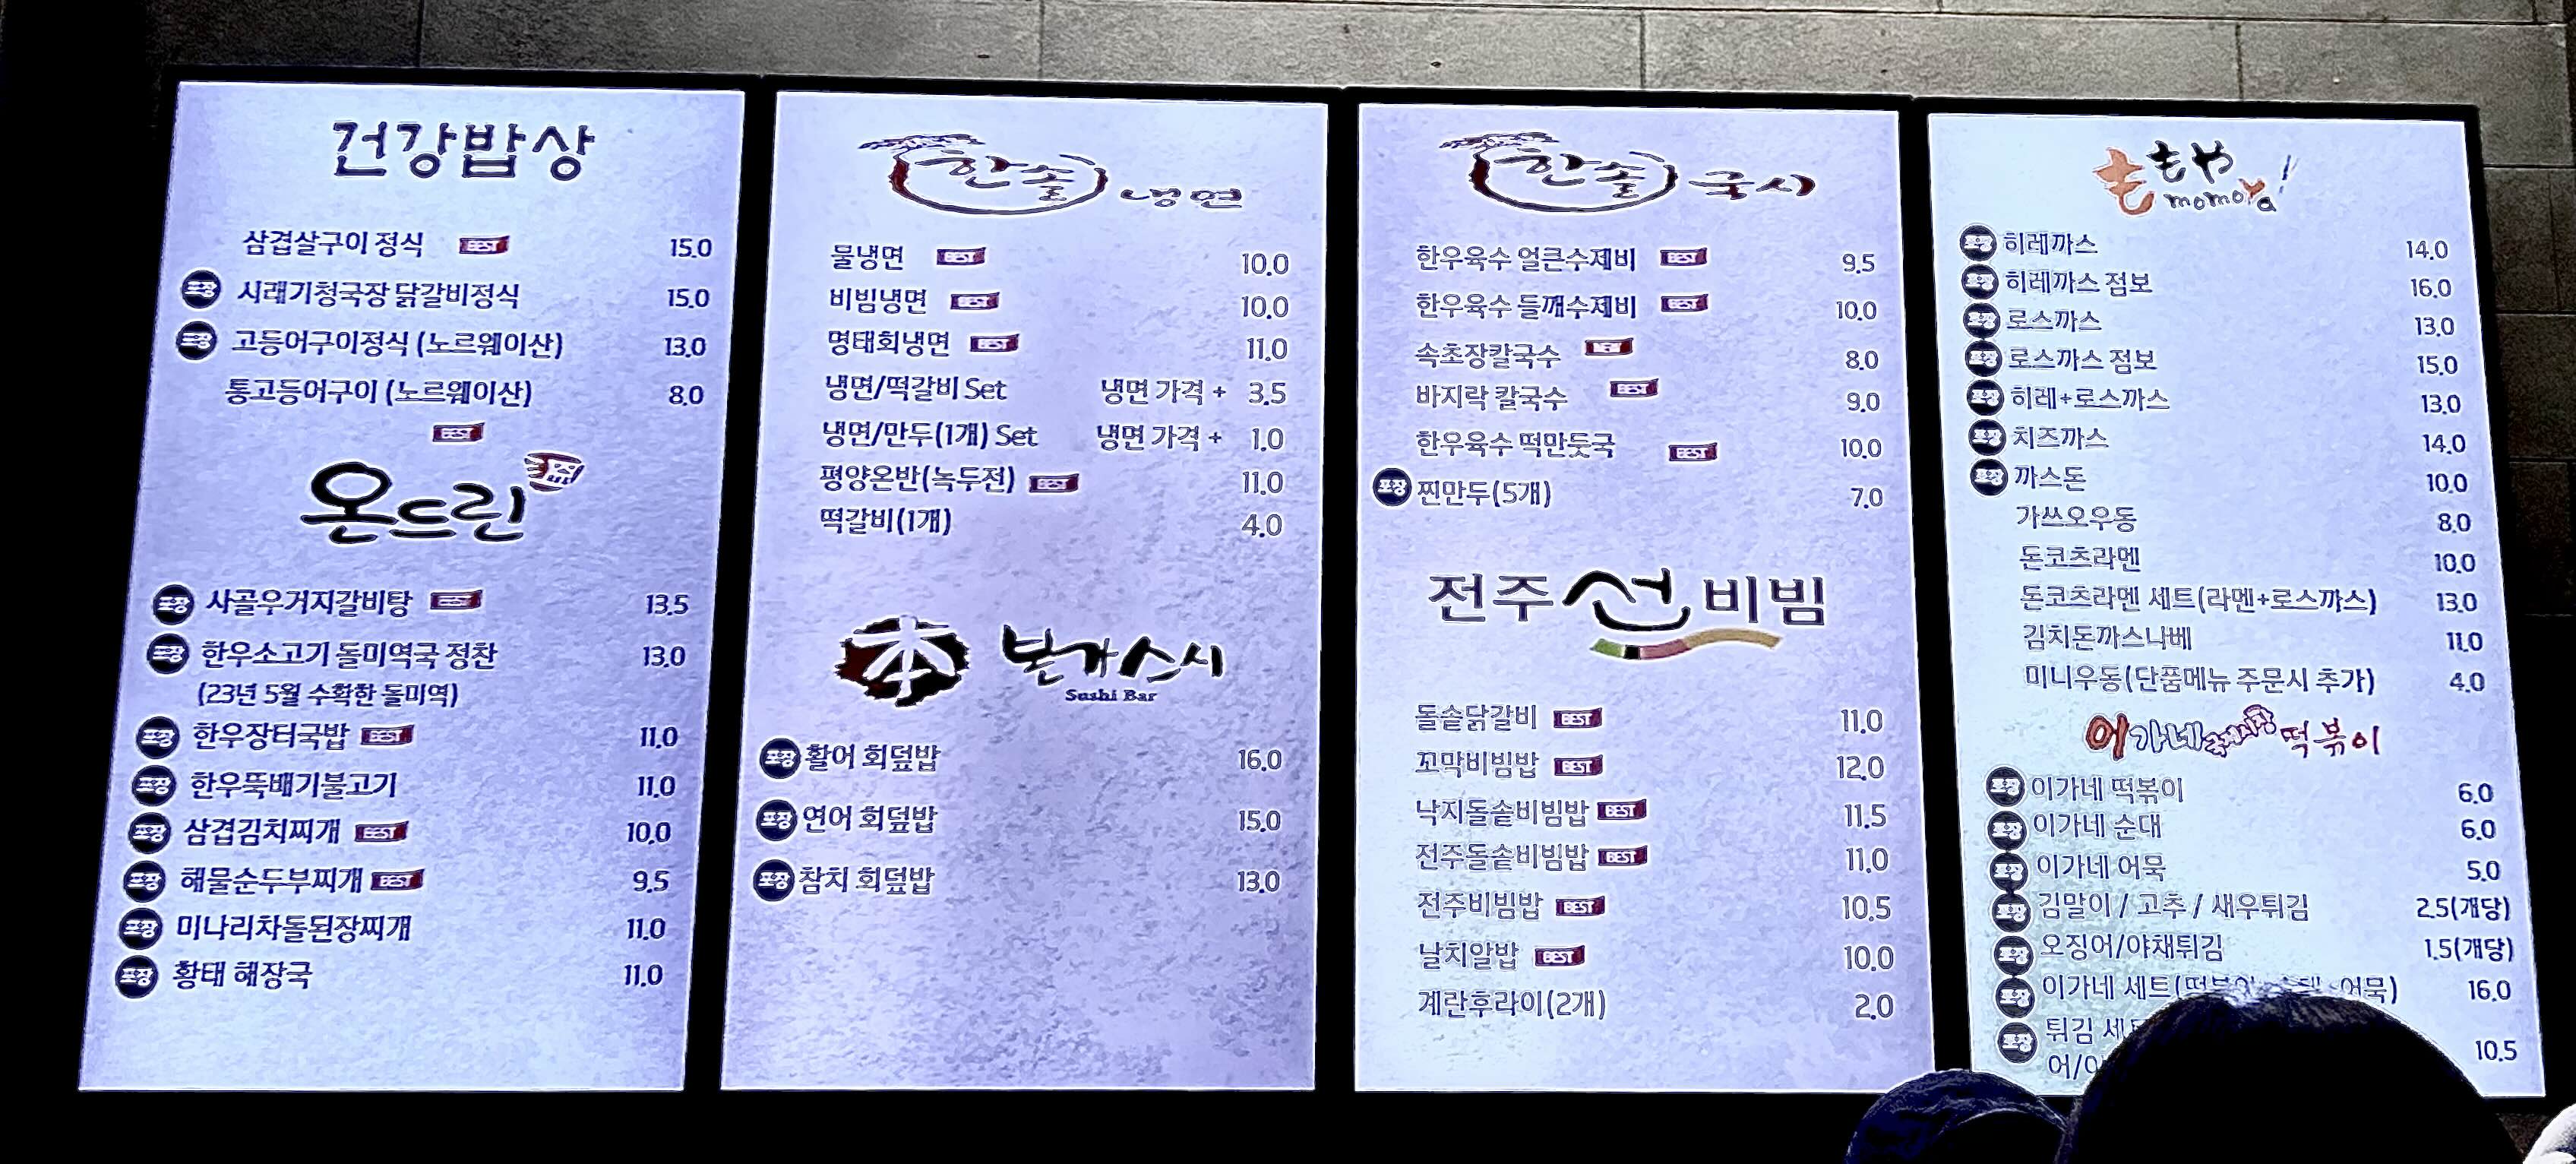 건강밥상
삼겹살구이 정식 BEST 15.0
포장 시래기청국장 닭갈비정식 15.0
포장 고등어구이정식 (노르웨이산) 13.0
통고등어구이 (노르웨이산) 8.0
BEST
온드린
포장 사골우거지갈비탕 BEST 13.5
포장 한우소고기 돌미역국 정찬 13.0
(23년 5월 수확한 돌미역)
포장 한우장터국밥 BEST 11.0
포장 한우뚝배기불고기 11.0
포장 삼겹김치찌개 BEST 10.0
포장 해물순두부찌개 BEST 9.5
포장 미나리차돌된장찌개 11.0
포장 황태 해장국 11.0
한솔 냉면
물냉면 BEST 10.0
비빔냉면 BEST 10.0
명태회냉면 BEST 11.0
냉면/떡갈비 Set 냉면 가격 + 3.5
냉면/만두(1개) Set 냉면 가격 + 1.0
평양온반(녹두전) BEST 11.0
떡갈비(1개) 4.0
本 본가스시
Sushi Bar
포장 활어 회덮밥 16.0
포장 연어 회덮밥 15.0
포장 참치 회덮밥 13.0
한솔 국시
한우육수 얼큰수제비 BEST 9.5
한우육수 들깨수제비 BEST 10.0
속초장칼국수 8.0
바지락 칼국수 BEST 9.0
한우육수 떡만둣국 BEST 10.0
포장 찐만두(5개) 7.0
전주 선 비빔
돌솥닭갈비 BEST 11.0
꼬막비빔밥 BEST 12.0
낙지돌솥비빔밥 BEST 11.5
전주돌솥비빔밥 BEST 11.0
전주비빔밥 BEST 10.5
날치알밥 BEST 10.0
계란후라이(2개) 2.0
ももや
momoya
포장 히레까스 14.0
포장 히레까스 점보 16.0
포장 로스까스 13.0
포장 로스까스 점보 15.0
포장 히레+로스까스 13.0
포장 치즈까스 14.0
포장 까스돈 10.0
가쓰오우동 8.0
돈코츠라멘 10.0
돈코츠라멘 세트(라멘+로스까스) 13.0
김치돈까스나베 11.0
미니우동(단품메뉴 주문시 추가) 4.0
이가네 떡볶이
포장 이가네 떡볶이 6.0
포장 이가네 순대 6.0
포장 이가네 어묵 5.0
포장 김말이 / 고추 / 새우튀김 2.5(개당)
포장 오징어/야채튀김 1.5(개당)
포장 이가네 세트( 어묵) 16.0
포장 튀김 10.5
어/